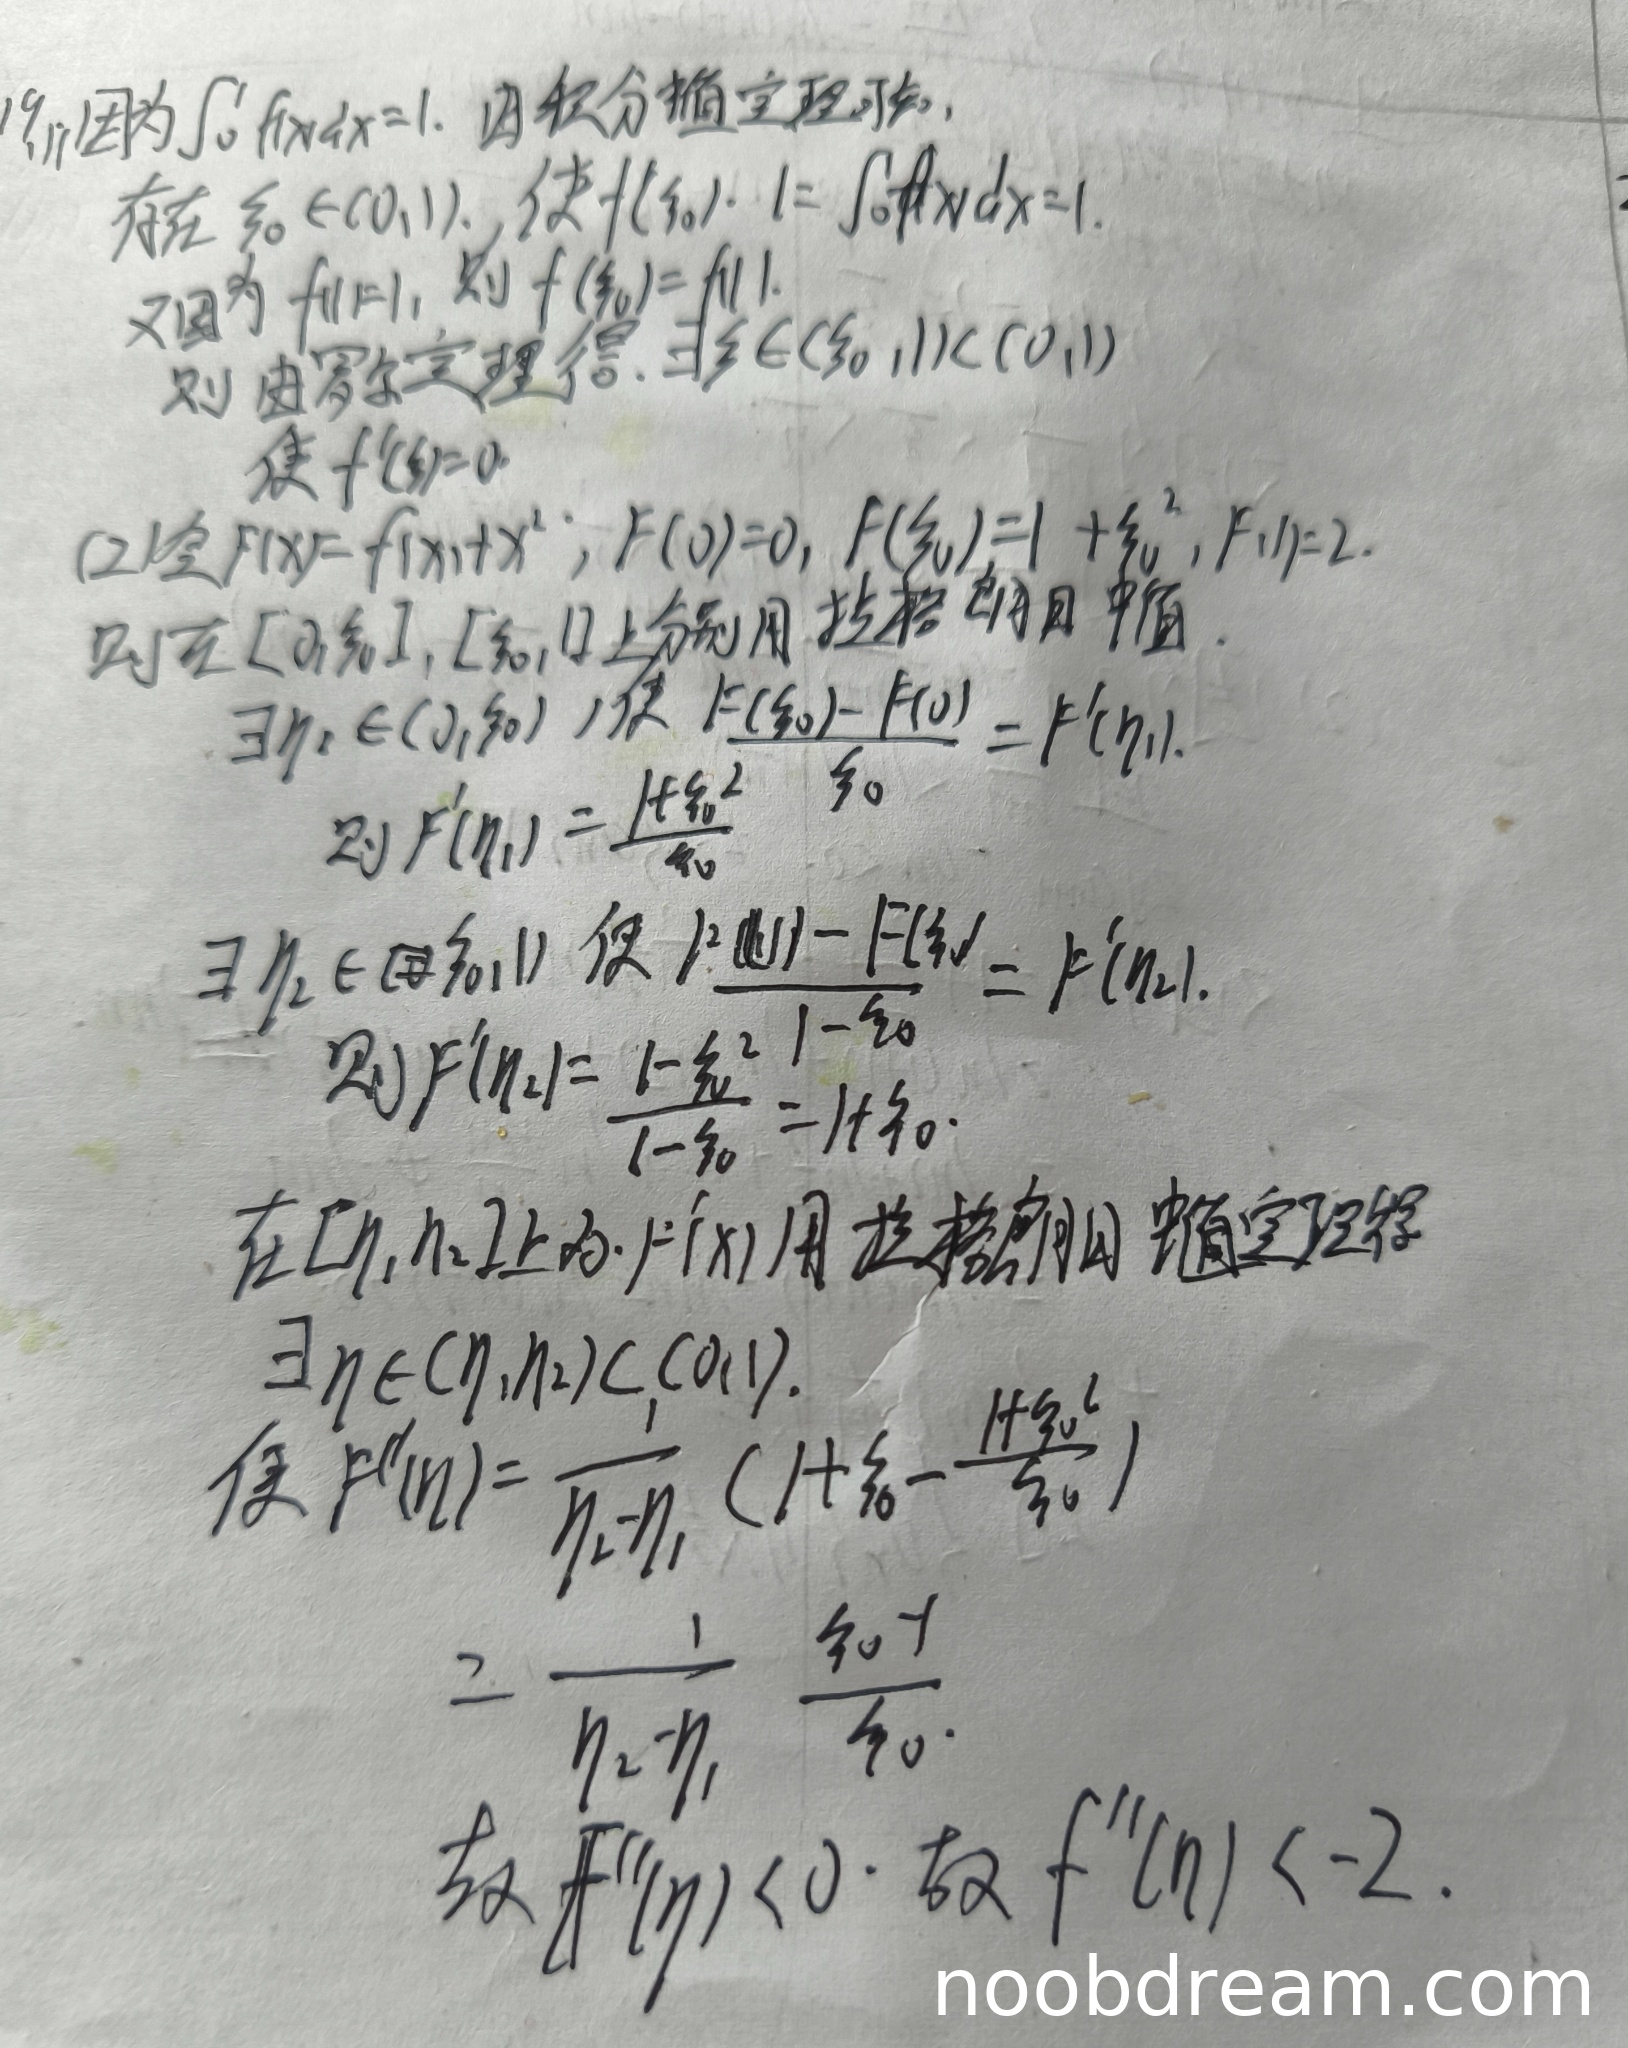 19.(1)因为∫₀¹f(x)dx=1. 由积分中值定理可知,
存在ξ₀∈(0,1).,使f(ξ₀)·1=∫₀¹f(x)dx=1.
又因为f(1)=1,则f(ξ₀)=f(1).
则由罗尔定理得.∃ξ∈(ξ₀,1)⊂(0,1)
使f'(ξ)=0.
(2)令F(x)=f(x)+x²; F(0)=0, F(ξ₀)=1+ξ₀², F(1)=2.
则在[0,ξ₀],[ξ₀,1]上分别用拉格朗日中值.
∃η₁∈(0,ξ₀),使(F(ξ₀)-F(0))/ξ₀=F'(η₁).
则F'(η₁)=(1+ξ₀²)/ξ₀
∃η₂∈(ξ₀,1)使(F(1)-F(ξ₀))/(1-ξ₀)=F'(η₂).
则F'(η₂)=(1-ξ₀²)/(1-ξ₀)=1+ξ₀.
在[η₁,η₂]上对.F'(x)用拉格朗日中值定理得
∃η∈(η₁,η₂)⊂(0,1).
使F''(η)=1/(η₂-η₁)(1+ξ₀-(1+ξ₀²)/ξ₀)
=1/(η₂-η₁) (ξ₀-1)/ξ₀.
故F''(η)<0.故f''(η)<-2.
noobdream.com